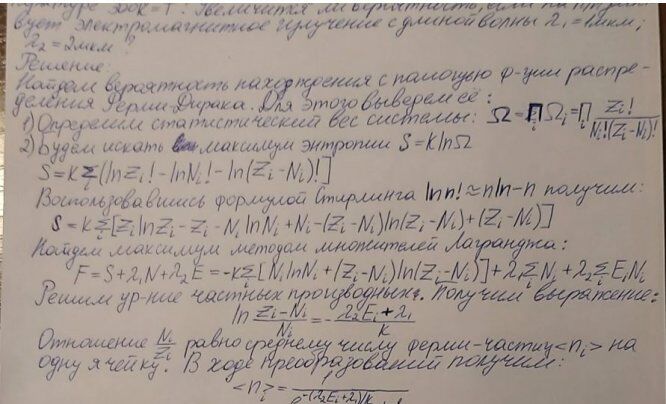 300K=T. Увеличится ли вероятность, если на
вует электромагнитное излучение с длиной волны λ₁=1мкм;
λ₂=2мкм?
Решение:
Найдем вероятность нахождения с помощью ф-ции распре-
деления Ферми-Дирака. Для этого выверем её:
1) Определим статистический вес системы: Ω = ∏ᵢ Ωᵢ = ∏ᵢ Zᵢ!/(Nᵢ!(Zᵢ-Nᵢ)!)
2) Будем искать максимум энтропии S=k lnΩ
S=k Σᵢ(lnZᵢ! - lnNᵢ! - ln(Zᵢ-Nᵢ)!]
Воспользовавшись формулой Стирлинга ln n! ≈ n ln - n получим:
S=k Σᵢ[Zᵢ lnZᵢ - Zᵢ - Nᵢ lnNᵢ + Nᵢ - (Zᵢ-Nᵢ)ln(Zᵢ-Nᵢ) + (Zᵢ-Nᵢ)]
Найдем максимум методом множителей Лагранджа:
F = S+λ₁N+λ₂E = -k Σᵢ[Nᵢ lnNᵢ + (Zᵢ-Nᵢ)ln(Zᵢ-Nᵢ)] + λ₁ Σᵢ Nᵢ + λ₂ Σᵢ EᵢNᵢ
Решим ур-ние частных производных. Получим выражение:
ln (Zᵢ-Nᵢ)/Nᵢ = - (λ₂Eᵢ+λ₁)/k
Отношение Nᵢ/Zᵢ равно среднему числу ферми-частиц <nᵢ> на
одну ячейку. В ходе преобразований получим:
<n>ᵢ = 1/e^(-(λ₂Eᵢ+λ₁)/k)